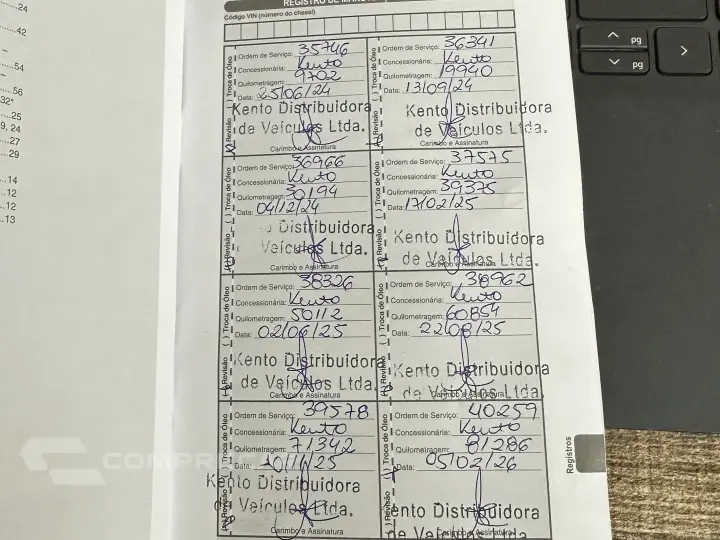 ...24
...42
...54
...56
32*
...25
9, 24
...27
...29
...14
...12
...12
...13
pg
pg
Código VIN (número do chassi)
( ) Troca de Óleo
Ordem de Serviço: 35746
Concessionária: Kento
Quilometragem: 9702
Data: 25/06/24
Kento Distribuidora
de Veículos Ltda.
Carimbo e Assinatura
Revisão
( ) Troca de Óleo
Ordem de Serviço: 36341
Concessionária: Kento
Quilometragem: 19940
Data: 13/09/24
Kento Distribuidora
de Veículos Ltda.
Carimbo e Assinatura
( ) Troca de Óleo
Ordem de Serviço: 36966
Concessionária: Kento
Quilometragem: 30194
Data: 04/12/24
Distribuidora
Veículos Ltda.
Carimbo e Assinatura
Revisão
( ) Troca de Óleo
Ordem de Serviço: 37575
Concessionária: Kento
Quilometragem: 39375
Data: 17/02/25
Kento Distribuidora
de Veículos Ltda.
Carimbo e Assinatura
Revisão
( ) Troca de Óleo
Ordem de Serviço: 38326
Concessionária: Kento
Quilometragem: 50112
Data: 02/06/25
Kento Distribuidora
de Veículos Ltda.
Carimbo e Assinatura
Revisão
( ) Troca de Óleo
Ordem de Serviço: 38962
Concessionária: Kento
Quilometragem: 60854
Data: 22/08/25
Kento Distribuidora
de Veículos Ltda.
Carimbo e Assinatura
Revisão
( ) Troca de Óleo
Ordem de Serviço: 39578
Concessionária: Kento
Quilometragem: 71342
Data: 10/11/25
Kento Distribuidora
de Veículos Ltda.
Carimbo e Assinatura
Revisão
( ) Troca de Óleo
Ordem de Serviço: 40259
Concessionária: Kento
Quilometragem: 81286
Data: 05/02/26
Kento Distribuidora
de Veículos Ltda.
Carimbo e Assinatura
Revisão
Registros